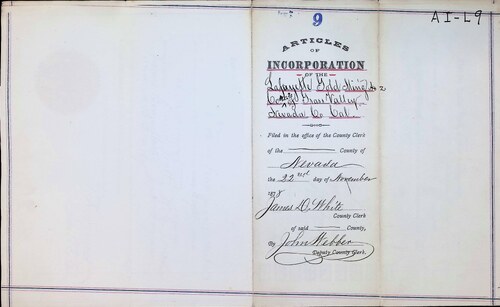 9
AI-L9
ARTICLES
OF
INCORPORATION
OF THE
Lafayette Gold Mining
No 2
of Grass Valley
Nevada Co Cal.
Filed in the office of the County Clerk
of the County of
Nevada
the 22nd day of November
1878
James D. White
County Clerk
of said County,
By John Webber
Deputy County Clerk.